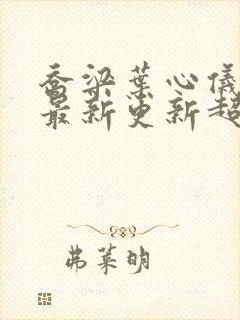 乔梁葉心儀
最新更新超
弗莱明